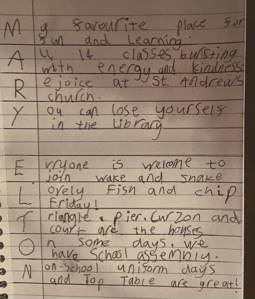 My favourite place for
fun and learning.
All 14 classes bursting
with energy and kindness
Rejoice at St. Andrews
church.
You can lose yourself
in the library
Evryone is welcome to
join wake and shake
Lovely Fish and chip
Friday!
Triangle, Pier, Curzon and
court are the houses
On some days, we
have school assembly.
Non-school uniform days
and Top Table are great!